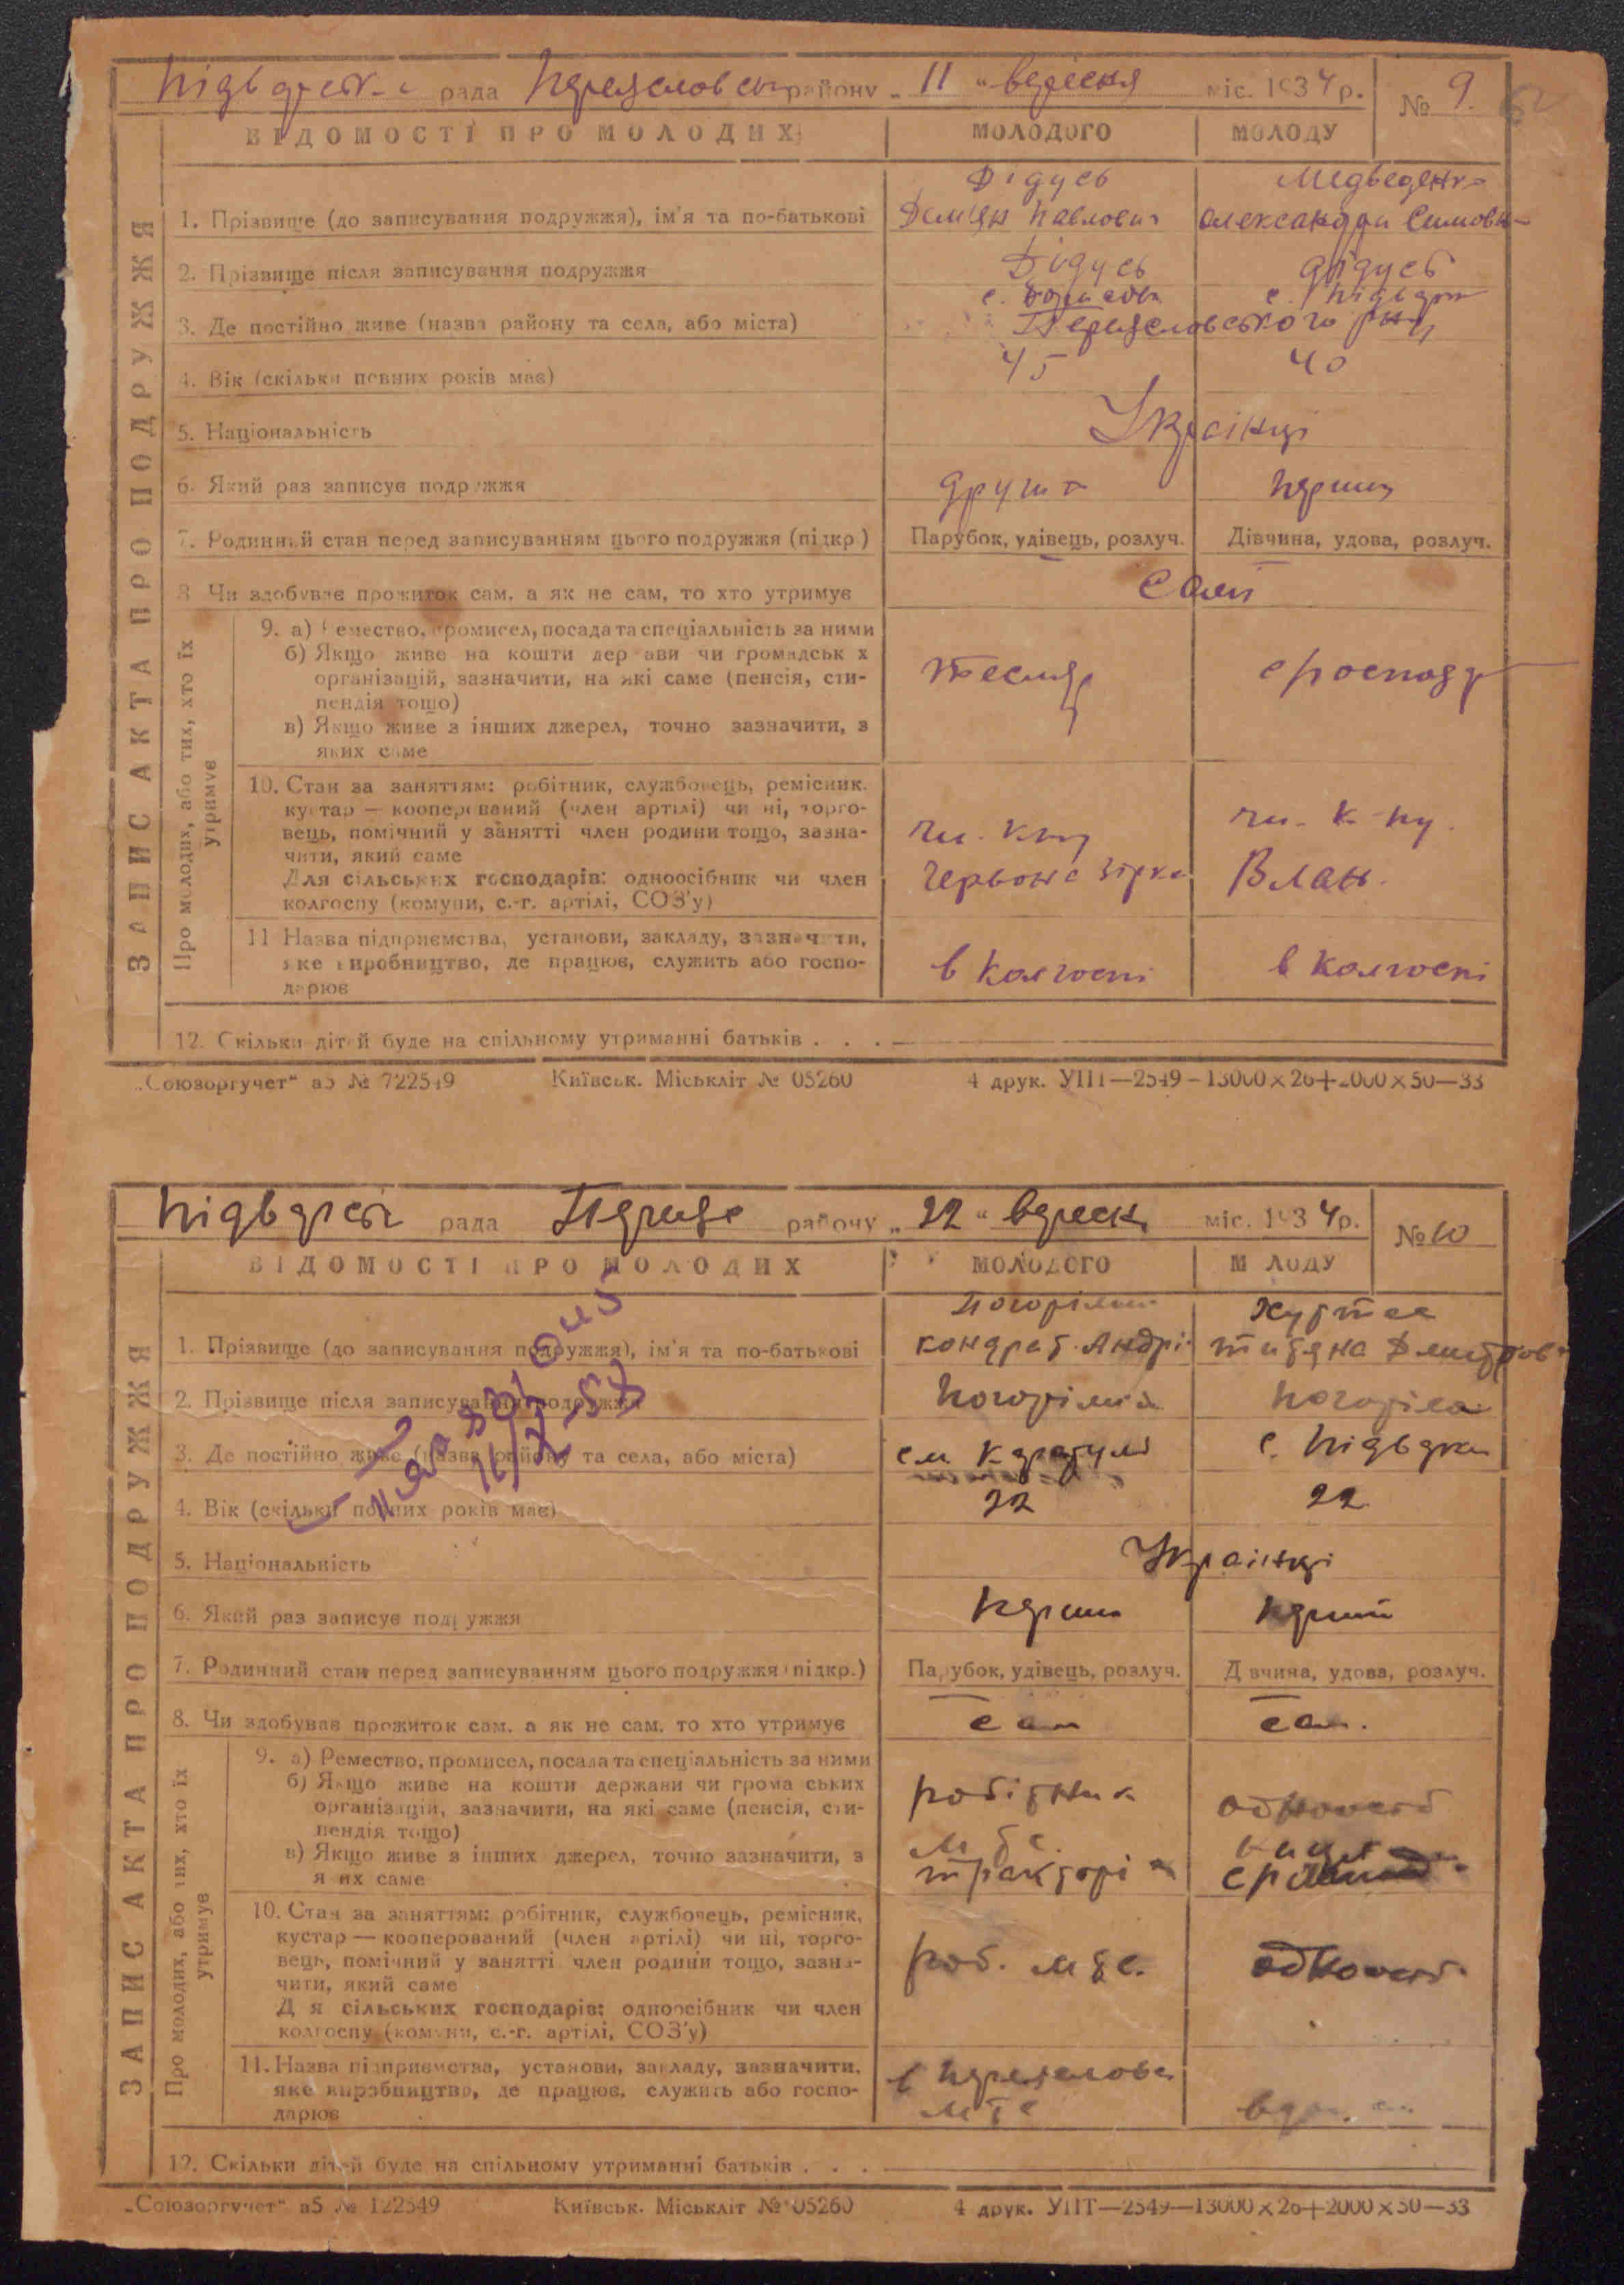 рада Переяславськ району „ 11 “ вересня міс. 1934 р. № 9.
ВІДОМОСТІ ПРО МОЛОДИХ МОЛОДОГО МОЛОДУ
ЗАПИС АКТА ПРО ПОДРУЖЖЯ
Дідусь Медведенко
1. Прізвище (до записування подружжя), ім'я та по-батькові Демян Павлович Олександра
2. Прізвище після записування подружжя Дідусь Дідусь
с. с. Підварк
3. Де постійно живе (назва району та села, або міста) Переяславського
4. Вік (скільки повних років має) 45 40
5. Національність Українці
6. Який раз записує подружжя другий перший
7. Родинний стан перед записуванням цього подружжя (підкр.) Парубок, удівець, розлуч. Дівчина, удова, розлуч.
8. Чи здобуває прожиток сам, а як не сам, то хто утримує Самі
Про молодих, або тих, хто їх утримує
9. а) Ремество, промисел, посада та спеціальність за ними
б) Якщо живе на кошти держави чи громадських
організацій, зазначити, на які саме (пенсія, сти-
пендія тощо) тесляр
в) Якщо живе з інших джерел, точно зазначити, з
яких саме
10. Стан за заняттям: робітник, службовець, ремісник,
кустар — кооперований (член артілі) чи ні, торго-
вець, помічний у занятті член родини тощо, зазна-
чити, який саме
Для сільських господарів: одноосібник чи член Червона зірка
колгоспу (комуни, с.-г. артілі, СОЗ'у)
11 Назва підприємства, установи, закладу, зазначити,
яке виробництво, де працює, служить або госпо- в колгоспі в колгоспі
дарює
12. Скільки дітей буде на спільному утриманні батьків . . .
„Союзоргучет“ а5 № 722549 Київськ. Міськліт № 05260 4 друк. УПП—2549—13000×26+2000×50—33
рада району „ 22 “ міс. 1934 р. № 10
ВІДОМОСТІ ПРО МОЛОДИХ МОЛОДОГО МОЛОДУ
ЗАПИС АКТА ПРО ПОДРУЖЖЯ
1. Прізвище (до записування подружжя), ім'я та по-батькові Кондрат Андрі Титяна Дмитров
2. Прізвище після записування подружжя Погорілий Погоріла
3. Де постійно живе (назва району та села, або міста) с. Підварки
4. Вік (скільки повних років має) 22 22
5. Національність Українці
6. Який раз записує подружжя перший перший
7. Родинний стан перед записуванням цього подружжя (підкр.) Парубок, удівець, розлуч. Дівчина, удова, розлуч.
8. Чи здобуває прожиток сам, а як не сам, то хто утримує сам сам.
Про молодих, або тих, хто їх утримує
9. а) Ремество, промисел, посада та спеціальність за ними
б) Якщо живе на кошти держави чи громадських робітник
організацій, зазначити, на які саме (пенсія, сти- одноосіб
пендія тощо)
в) Якщо живе з інших джерел, точно зазначити, з мтс.
яких саме
10. Стан за заняттям: робітник, службовець, ремісник,
кустар — кооперований (член артілі) чи ні, торго-
вець, помічний у занятті член родини тощо, зазна- роб. мтс. одноосіб.
чити, який саме
Для сільських господарів: одноосібник чи член
колгоспу (комуни, с.-г. артілі, СОЗ'у)
11. Назва підприємства, установи, закладу, зазначити,
яке виробництво, де працює, служить або госпо- в Переяслові
дарює мтс
12. Скільки дітей буде на спільному утриманні батьків . . .
„Союзоргучет“ а5 № 122549 Київськ. Міськліт № 05260 4 друк. УПТ—2549—13000×26+2000×50—33